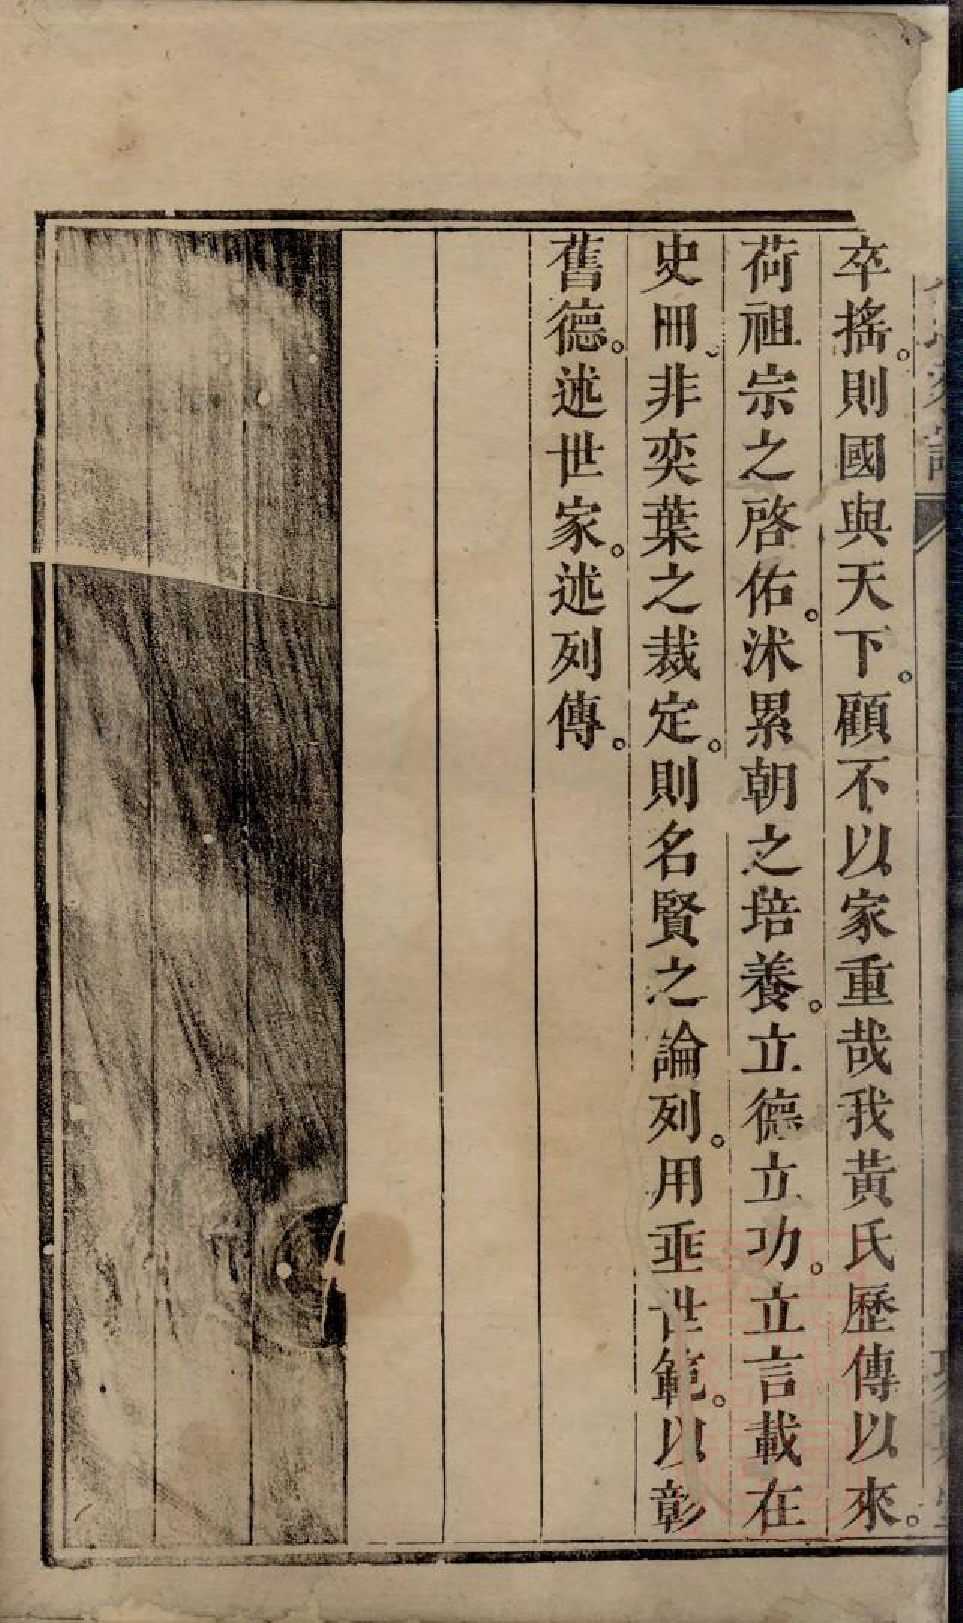 卒搖。則國與天下。顧不以家重哉我黃氏歷傳以來。
荷祖宗之啓佑。沭累朝之培養。立德立功。立言載在
史冊、非奕葉之裁定。則名賢之論列。用垂世範。以彰
舊德。述世家。述列傳。